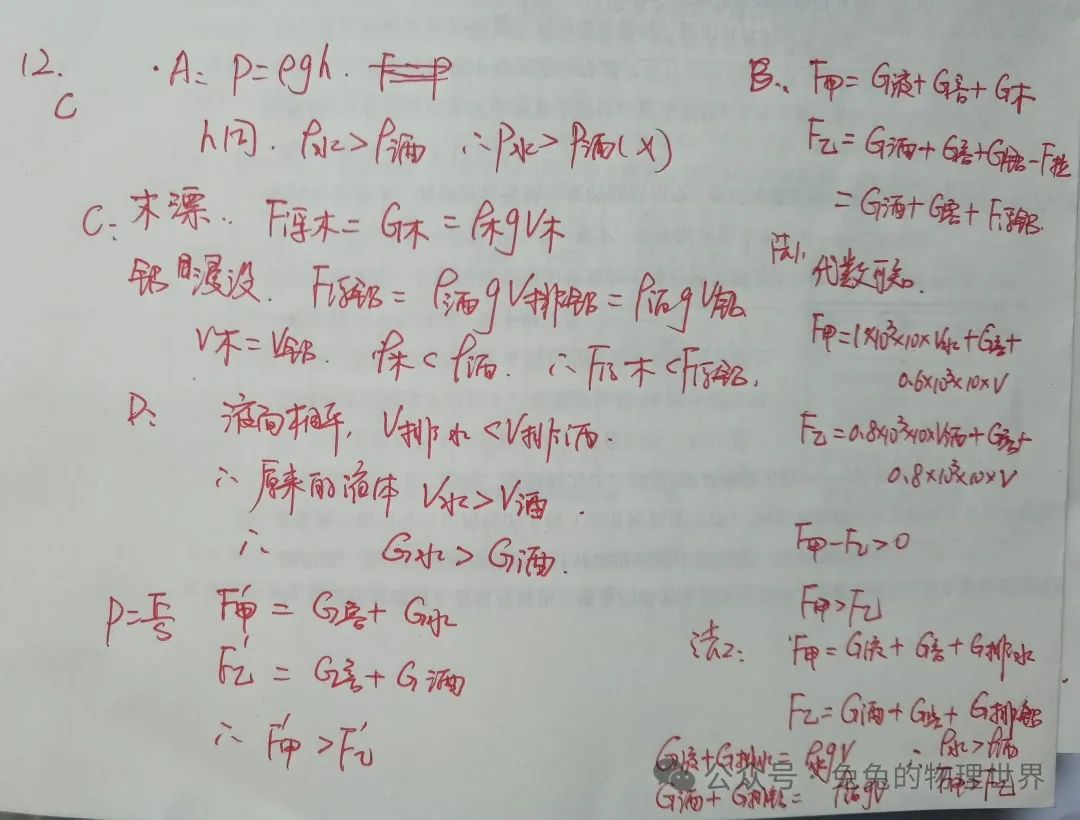 12.
C
A: P=ρgh. F=P
h同. ρ水>ρ酒 ∴P水>P酒(×)
C: 木漂.. F浮木=G木=ρ木gV木
铝浸没. F浮铝=ρ酒gV排铝=ρ酒gV铝
V木=V铝. ρ木<ρ酒. ∴F浮木<F浮铝.
D: 液面相平, V排水<V排酒
∴原来的液体 V水>V酒.
∴ G水>G酒.
P=F/S F甲'=G容+G水
F乙'=G容+G酒
∴F甲'>F乙'
B.. F甲=G液+G容+G木
F乙=G酒+G容+G铝-F拉
=G酒+G容+F浮铝.
法1.
代数可知.
F甲=1×10³×10×V水+G容+
0.6×10³×10×V
F乙=0.8×10³×10×V酒+G容+
0.8×10³×10×V
F甲-F乙>0
F甲>F乙
法2: F甲=G液+G容+G排水
F乙=G酒+G容+G排铝
G液+G排水=ρ水gV ∴ρ水>ρ酒
G酒+G排铝=ρ酒gV F甲>F乙
公众号·兔兔的物理世界